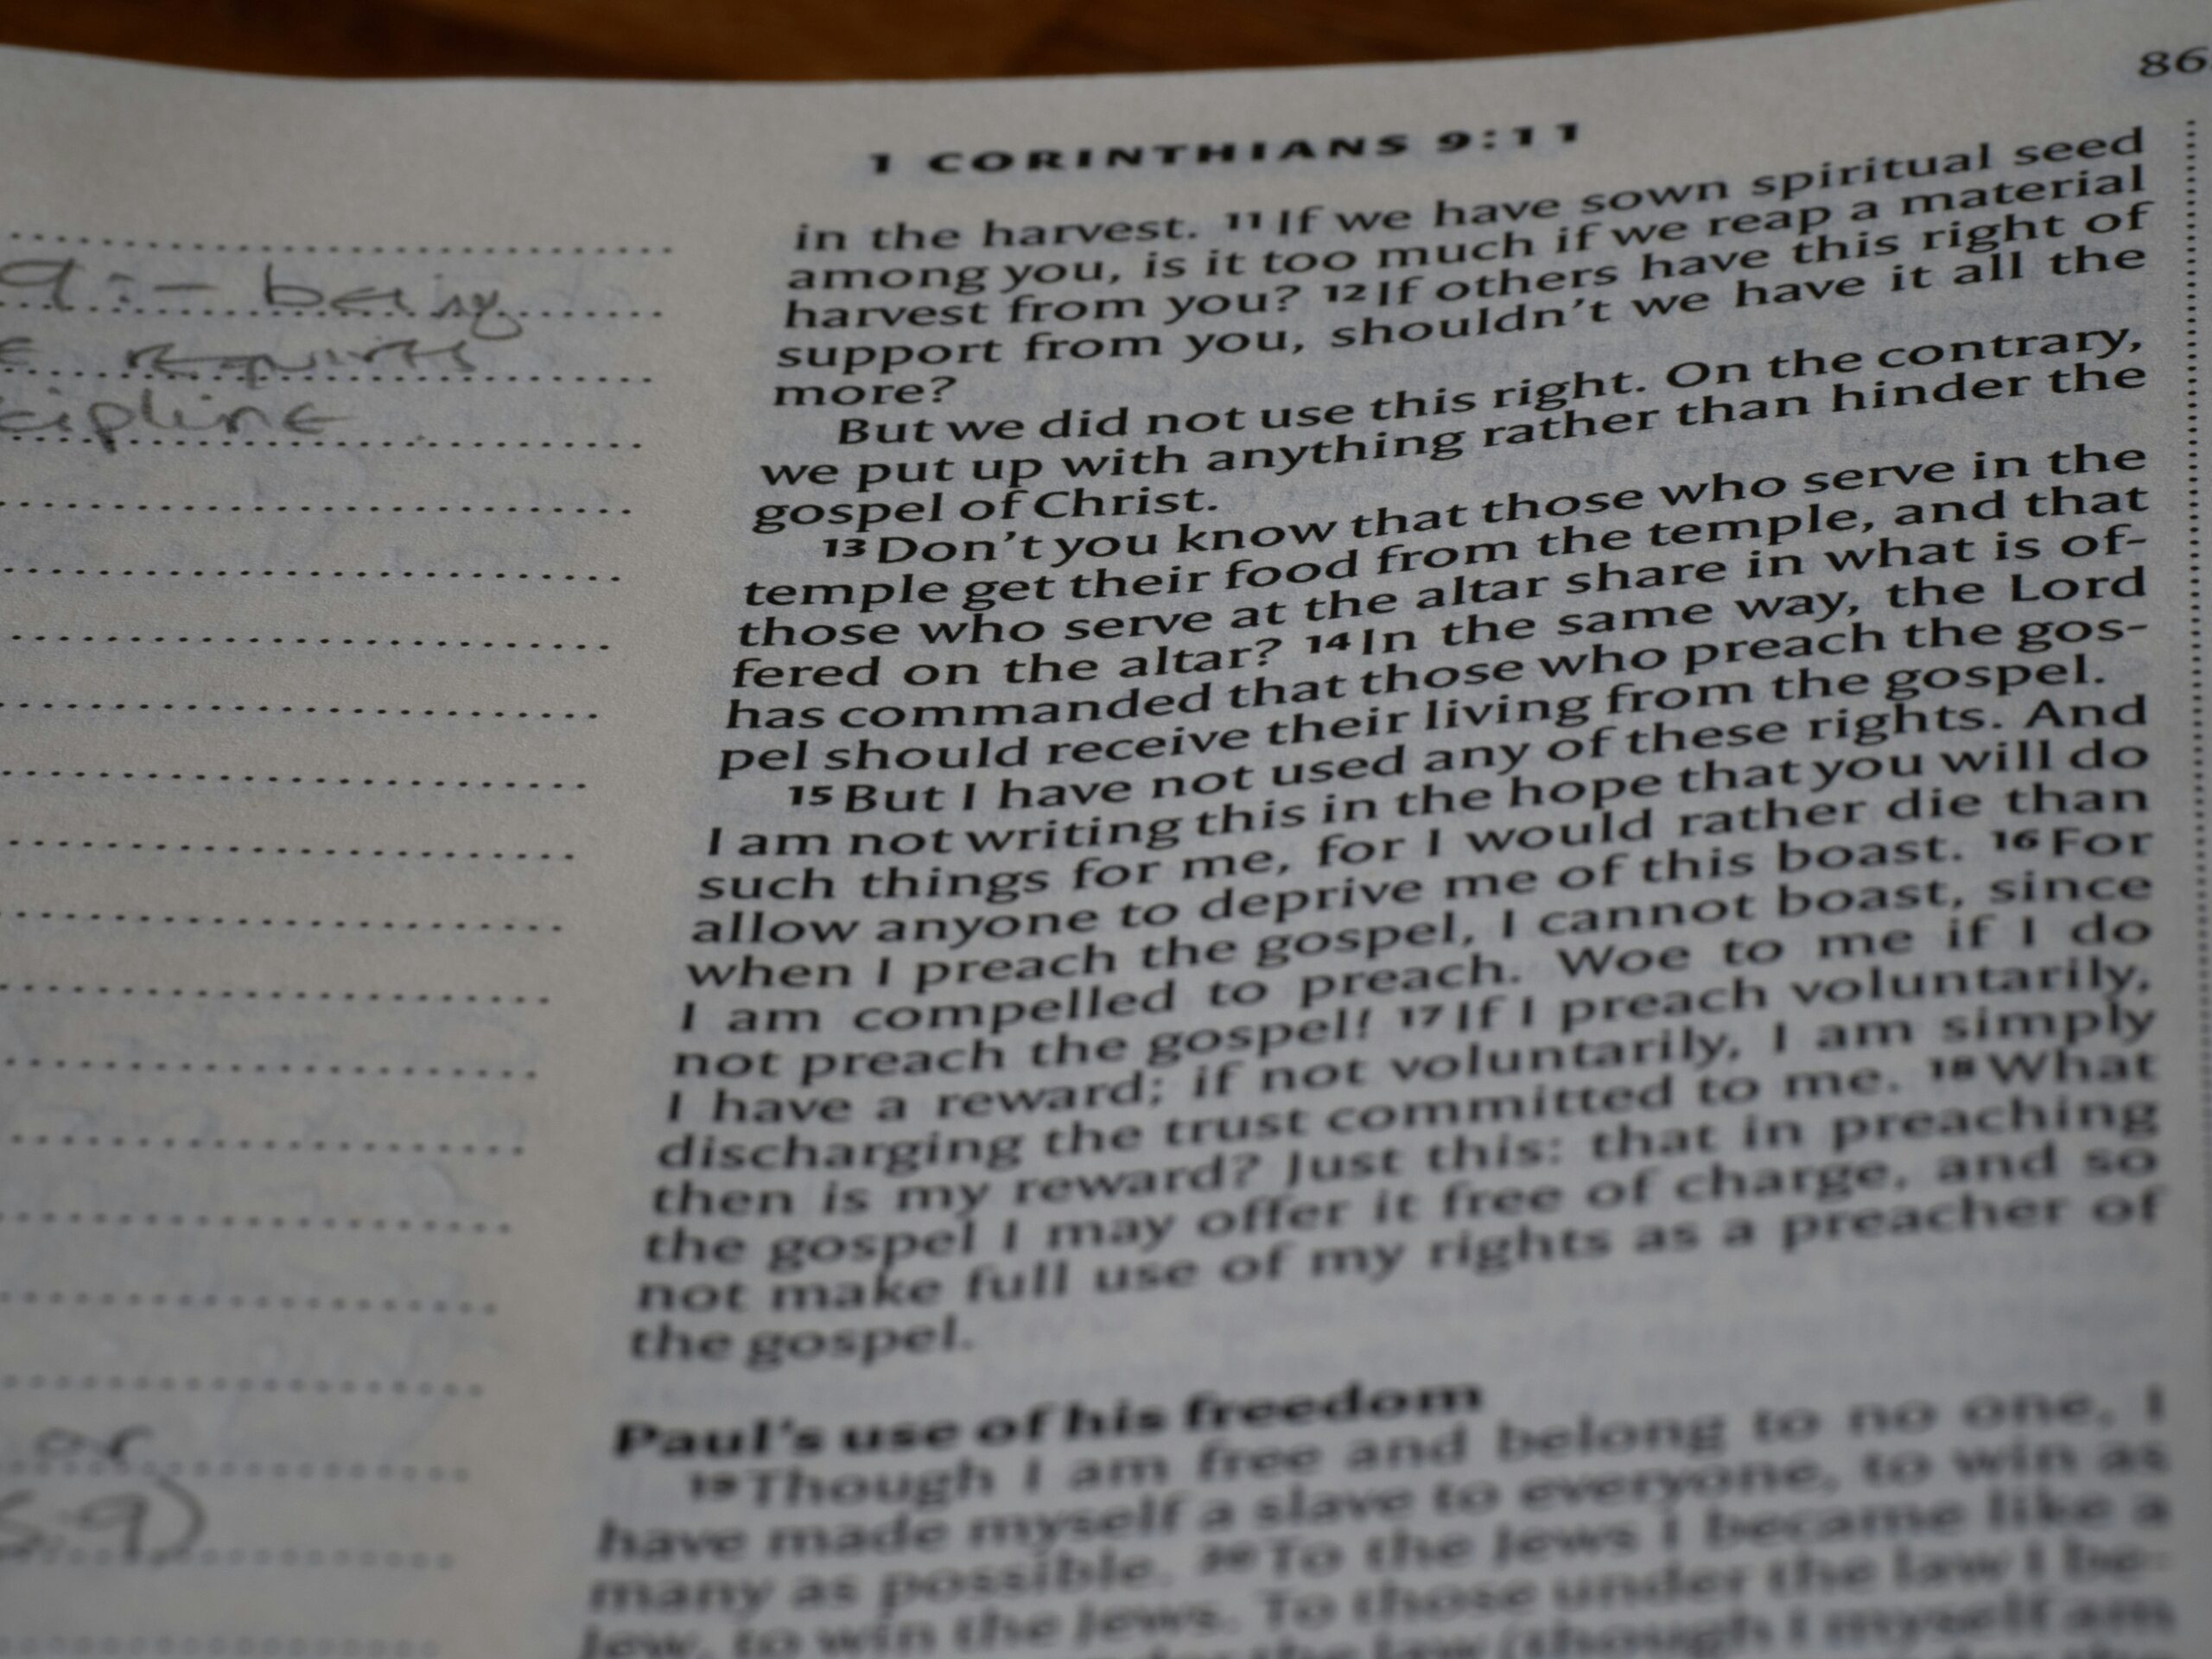 86
1 CORINTHIANS 9:11
in the harvest. 11 If we have sown spiritual seed
among you, is it too much if we reap a material
harvest from you? 12 If others have this right of
support from you, shouldn't we have it all the
more?
But we did not use this right. On the contrary,
we put up with anything rather than hinder the
gospel of Christ.
13 Don't you know that those who serve in the
temple get their food from the temple, and that
those who serve at the altar share in what is of-
fered on the altar? 14 In the same way, the Lord
has commanded that those who preach the gos-
pel should receive their living from the gospel.
15 But I have not used any of these rights. And
I am not writing this in the hope that you will do
such things for me, for I would rather die than
allow anyone to deprive me of this boast. 16 For
when I preach the gospel, I cannot boast, since
I am compelled to preach. Woe to me if I do
not preach the gospel! 17 If I preach voluntarily,
I have a reward; if not voluntarily, I am simply
discharging the trust committed to me. 18 What
then is my reward? Just this: that in preaching
the gospel I may offer it free of charge, and so
not make full use of my rights as a preacher of
the gospel.
Paul's use of his freedom
19 Though I am free and belong to no one, I
have made myself a slave to everyone, to win as
many as possible. 20 To the Jews I became like a
Jew, to win the Jews. To those under the law I be-
the law (though I myself am
9:- being
requires
cipline
or
5:9)